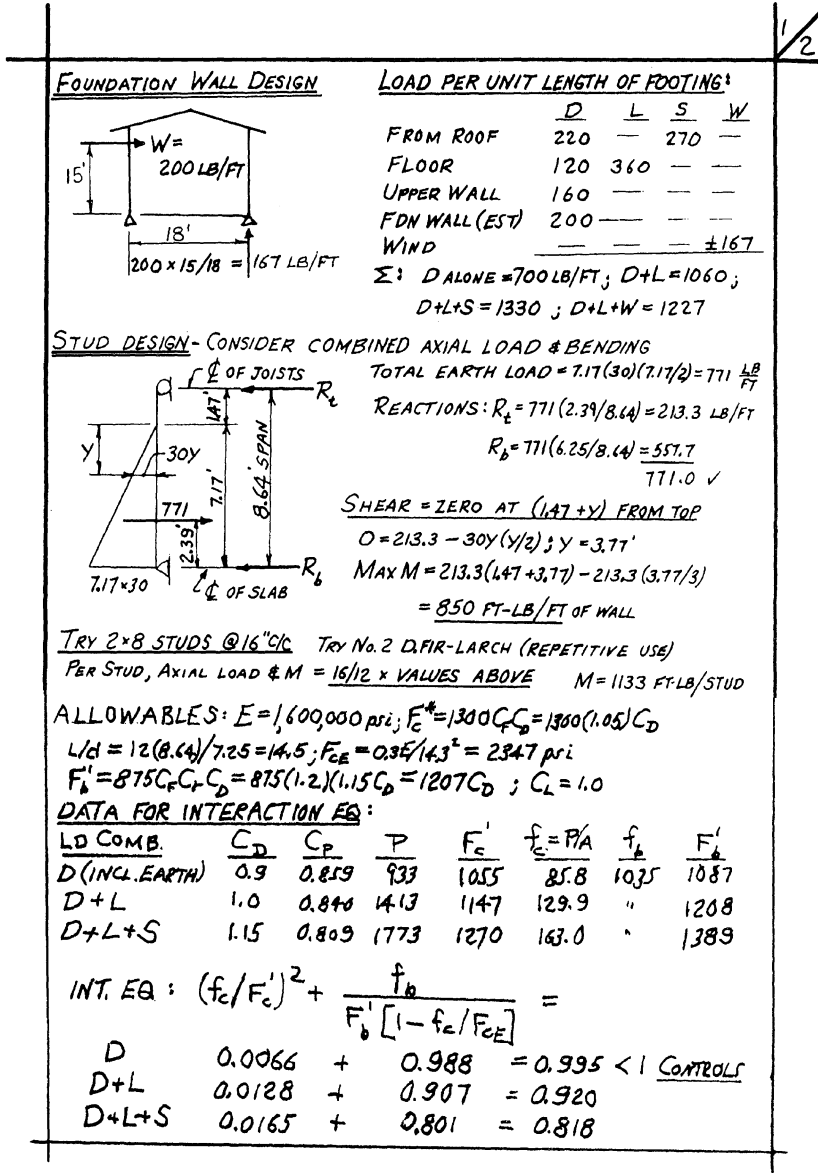 1/2
FOUNDATION WALL DESIGN
W=
200 LB/FT
15'
18'
200 × 15/18 = 167 LB/FT
LOAD PER UNIT LENGTH OF FOOTING:
D L S W
FROM ROOF 220 — 270 —
FLOOR 120 360 — —
UPPER WALL 160 — — —
FDN WALL (EST) 200 — — —
WIND — — — ±167
Σ: D ALONE = 700 LB/FT; D+L = 1060;
D+L+S = 1330 ; D+L+W = 1227
STUD DESIGN - CONSIDER COMBINED AXIAL LOAD & BENDING
℄ OF JOISTS
Rt
1.47'
Y
30Y
7.17'
8.64' SPAN
771
2.39'
Rb
7.17×30
℄ OF SLAB
TOTAL EARTH LOAD = 7.17(30)(7.17/2) = 771 LB/FT
REACTIONS: Rt = 771(2.39/8.64) = 213.3 LB/FT
Rb = 771(6.25/8.64) = 557.7
771.0 ✓
SHEAR = ZERO AT (1.47 + Y) FROM TOP
0 = 213.3 − 30Y(Y/2); Y = 3.77'
MAX M = 213.3(1.47 + 3.77) − 213.3(3.77/3)
= 850 FT-LB/FT OF WALL
TRY 2×8 STUDS @ 16" C/C TRY No. 2 D.FIR-LARCH (REPETITIVE USE)
PER STUD, AXIAL LOAD & M = 16/12 × VALUES ABOVE M = 1133 FT-LB/STUD
ALLOWABLES: E = 1,600,000 psi; Fc* = 1300 CF CD = 1300(1.05) CD
L/d = 12(8.64)/7.25 = 14.5; FcE = 0.3E/14.3² = 2347 psi
Fb' = 875 CF Cr CD = 875(1.2)(1.15 CD = 1207 CD ; CL = 1.0
DATA FOR INTERACTION EQ:
LD COMB. CD CP P Fc' fc = P/A fb Fb'
D (INCL. EARTH) 0.9 0.859 933 1055 85.8 1035 1087
D + L 1.0 0.840 1413 1147 129.9 " 1208
D+L+S 1.15 0.809 1773 1270 163.0 " 1389
INT. EQ : (fc/Fc')² + fb / Fb' [1 − fc/FcE] =
D 0.0066 + 0.988 = 0.995 < 1 CONTROLS
D+L 0.0128 + 0.907 = 0.920
D+L+S 0.0165 + 0.801 = 0.818